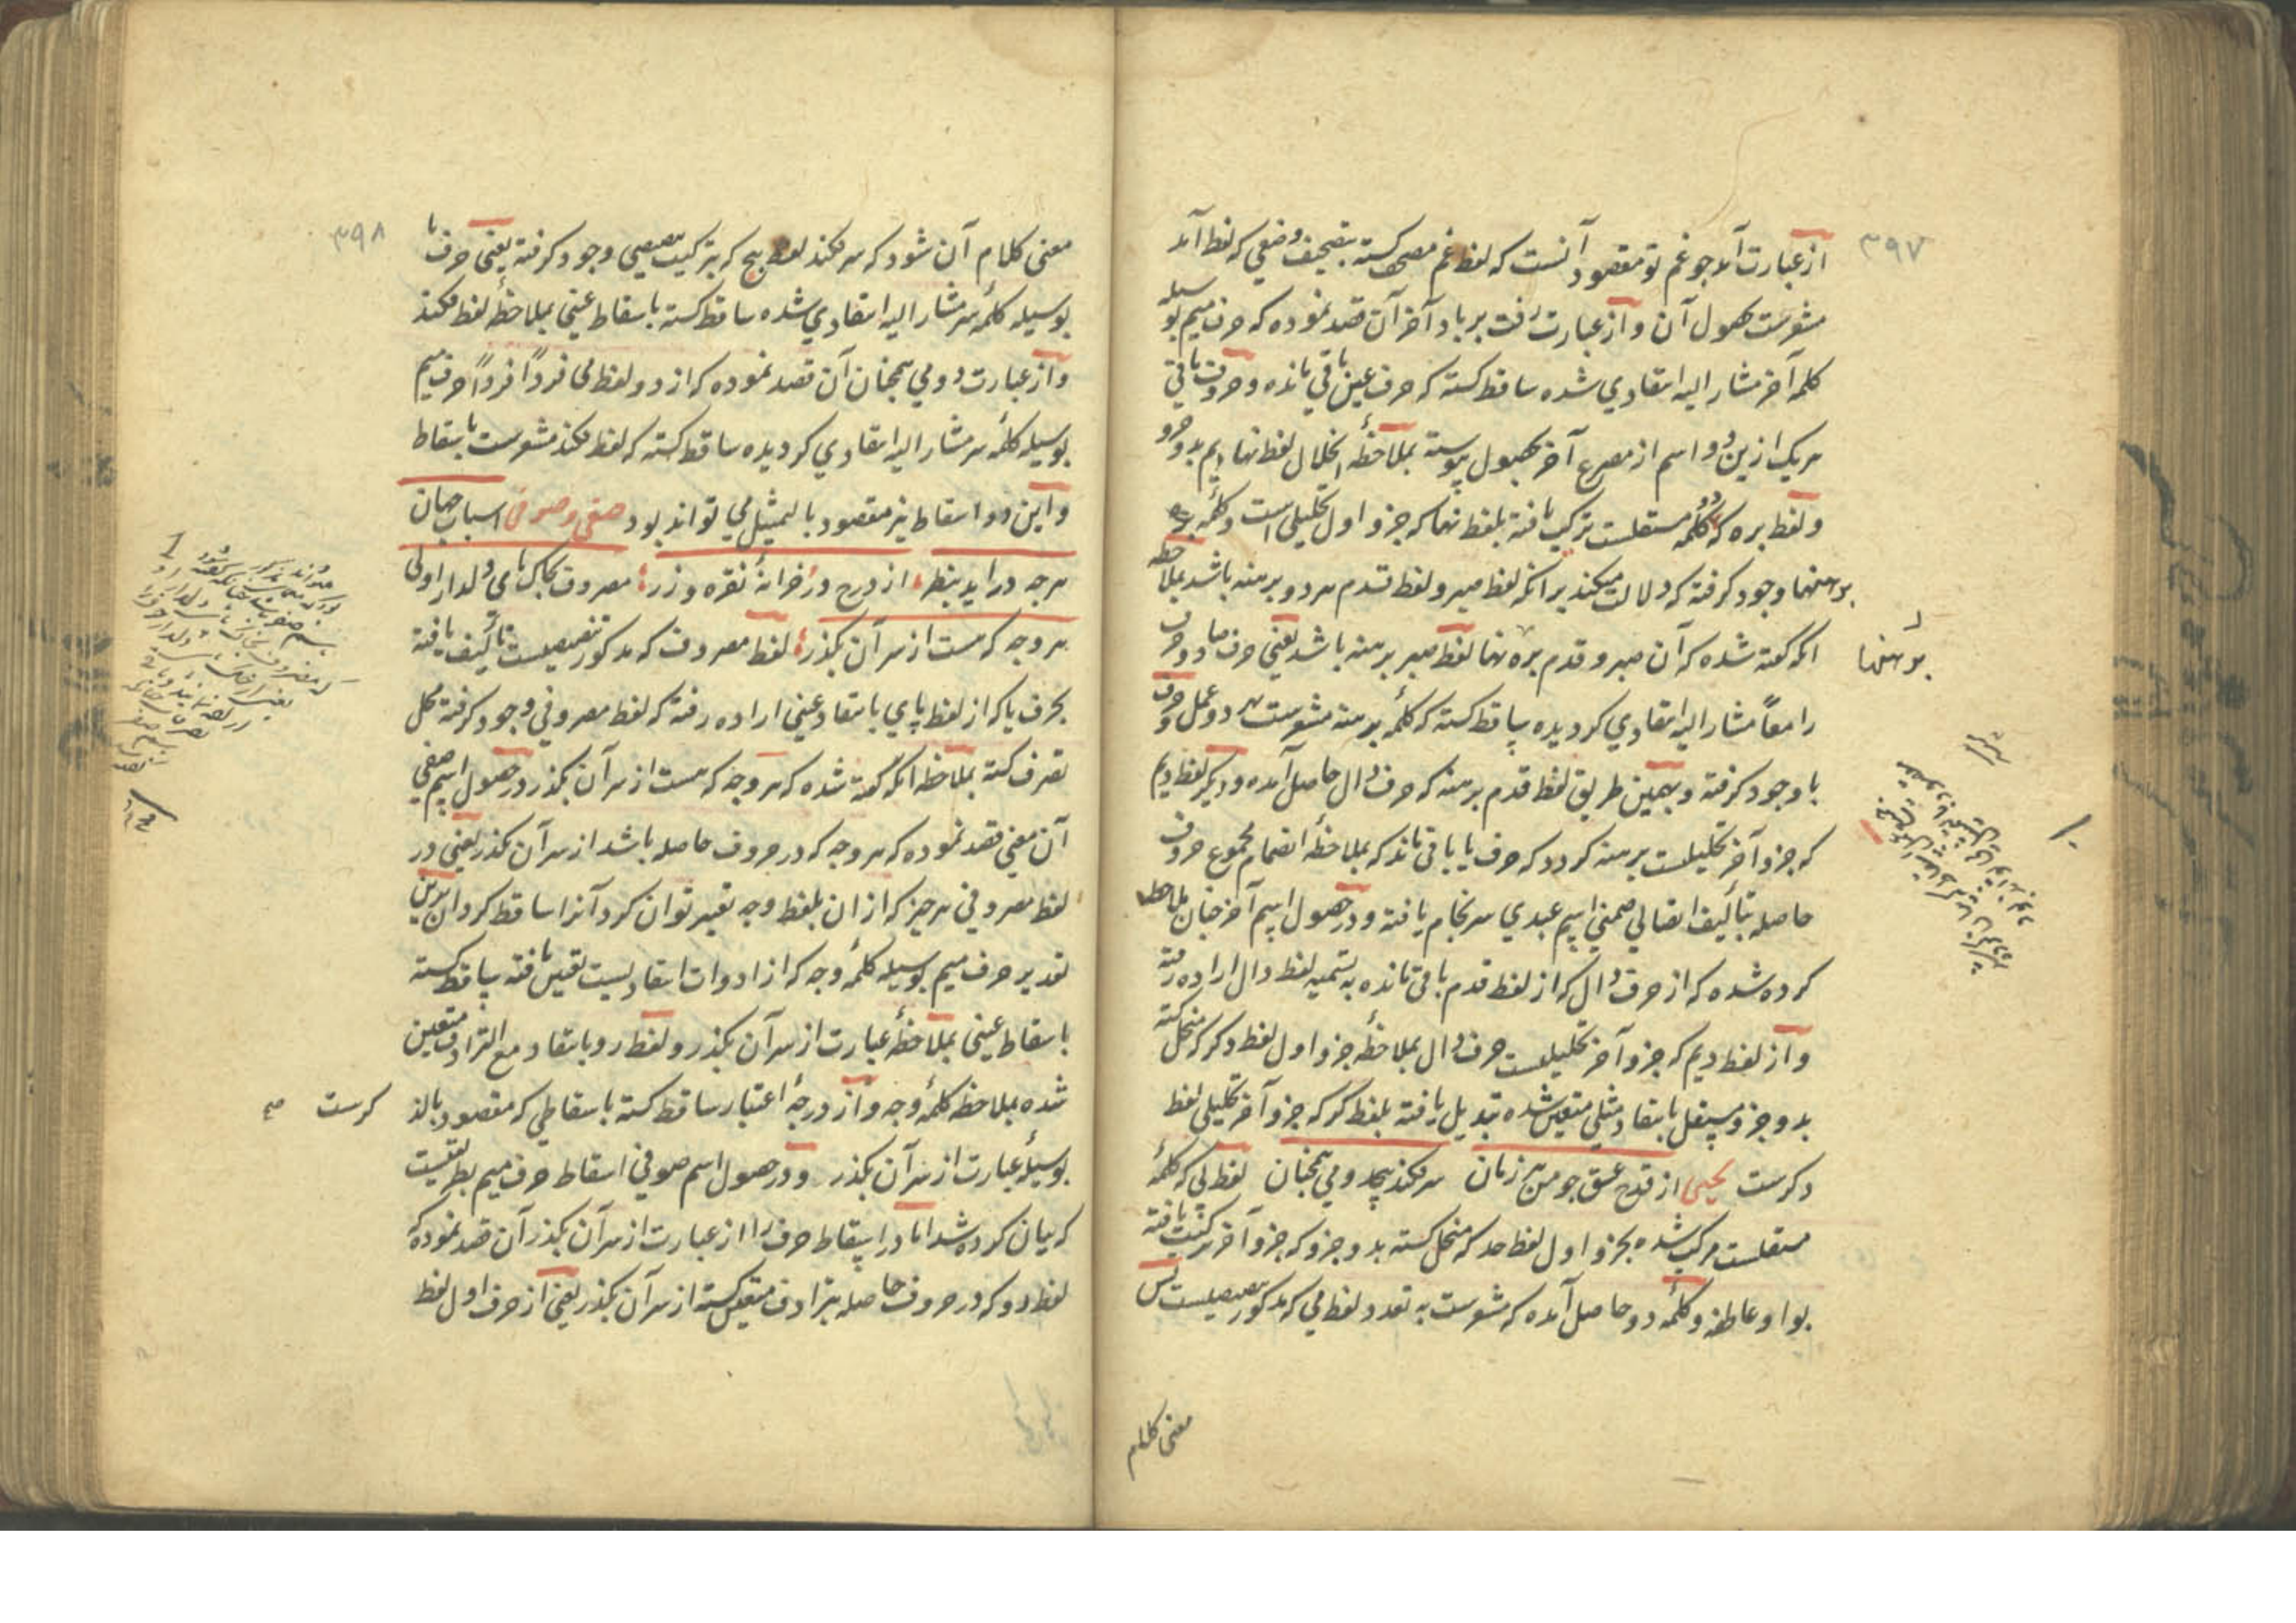 ۳۹۷
از عبارت آمد جو غم تو مقصود آنست که لفظ غم مصحف کسته بتصحیف وضعی که لفظ آمد
مشعرست بحصول آن و از عبارت رفت بر باد آخر آن قصد نموده که حرف میم بوسیله
کلمه آخر مشار الیه انتقادی شده ساقط کسته که حرف عین باقی مانده و حروف باقی
هر یک ازین دو اسم از مصرع آخر بحصول پیوسته بملاحظه انحلال لفظ نهادیم بدو جزو
و لفظ بره که کلمه مستقلست ترکیب یافته بلفظ نها که جزو اول تحلیلی است و کلمه
برهنها وجود کرفته که دلالت میکند بر انکه لفظ صبر و لفظ قدم هر دو برهنه باشد بملاحظه
انکه کفته شده که آن صبر و قدم بره نها لفظ صبر برهنه باشد یعنی حرف صاد و حرف
را معاً مشار الیه انتقادی کردیده ساقط کسته که کلمه برهنه مشعرست بر دو عمل و حرف
با وجود کرفته و بهمین طریق لفظ قدم برهنه که حرف دال حاصل آمده و دیکر لفظ دیم
که جزو آخر تحلیلیست برهنه کردد که حرف یا باقی ماند که بملاحظه انضمام مجموع حروف
حاصله بتألیف اتصالی ضمنی اسم عبدی سرانجام یافته و در حصول اسم آخر چنان ملاحظه
کرده شده که از حرف دال که از لفظ قدم باقی مانده به تسمیه لفظ دال اراده رفته
و از لفظ دیم که جزو آخر تحلیلیست حرف دال بملاحظه جزو اول لفظ دکر که منحل کسته
بدو جزو مستقل بانتقاد مثلی متعین شده تبدیل یافته بلفظ کر که جزو آخر تحلیلی لفظ
دکرست یحیی از قدح عشق جو من هر زمان سر فکند بیحد و می همچنان لفظ بی که کلمه
مستقلست مرکب شده بجزو اول لفظ حد که منحل کسته بدو جزو که جزو آخر ترکیب یافته
بواو عاطفه و کلمه دو حاصل آمده که مشعرست به تعدد لفظ می که مذکور تنصیصیست پس
برهنها
معنی کلام
۳۹۸
معنی کلام آن شود که سر فکند لفظ بیح که بترکیب تنصیصی وجود کرفته یعنی حرف با
بوسیله کلمه سر مشار الیه انتقادی شده ساقط کسته باسقاط عینی بملاحظه لفظ فکند
و از عبارت دو می همچنان آن قصد نموده که از دو لفظ می فرداً فرداً حرف میم
بوسیله کلمه سر مشار الیه انتقادی کردیده ساقط کسته که لفظ فکند مشعرست باسقاط
و این دو اسقاط نیز مقصود بالتمثیل می تواند بود صفی و صوفی اسباب جهان
هرچه دراید بنظر از درج در خزانه نقره و زر معروف بخاک پای دلدار اولی
هر وجه که هست از سر آن بکذر لفظ مصروف که مذکور تنصیصیست تألیف یافته
بحرف یا که از لفظ پای بانتقاد عینی اراده رفته که لفظ مصروفی وجود کرفته محل
تصرف کسته بملاحظه انکه کفته شده که هر وجه که هست از سر آن بکذر در حصول اسم صفی
آن معنی قصد نموده که هر وجه که در حروف حاصله باشد از سر آن بکذر یعنی در
لفظ مصروفی هر چیز که ازان بلفظ وجه تعبیر توان کرد آنرا ساقط کردان برین
تقدیر حرف میم بوسیله کلمه وجه که از ادوات انتقادیست تعین یافته ساقط کسته
باسقاط عینی بملاحظه عبارت از سر آن بکذر و لفظ رو بانتقاد مع الترادف متعین
شده بملاحظه کلمه وجه و از درجه اعتبار ساقط کسته باسقاطی که مقصود بالذ
بوسیله عبارت از سر آن بکذر و در حصول اسم صوفی اسقاط حرف میم بطریقیست
که بیان کرده شد اما در اسقاط حرف را از عبارت از سر آن بکذر آن قصد نموده که
لفظ رو که در حروف حاصله بترادف متعین کسته از سر آن بکذر یعنی از حرف اول لفظ
کرست صح